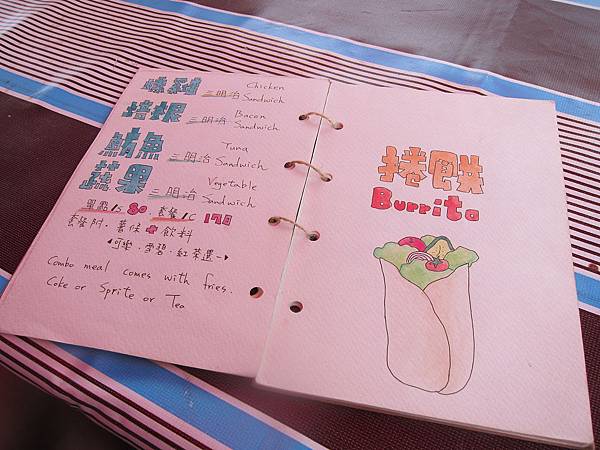 咻雞 三明治 Chicken Sandwich
培根 三明治 Bacon Sandwich
鮪魚 三明治 Tuna Sandwich
蔬果 三明治 Vegetable Sandwich
單點/S 80、套餐/C 170
套餐附. 薯條+飲料
(可樂.雪碧.紅茶選一)
Combo meal comes with fries.
Coke or Sprite or Tea
捲餅
Burrito